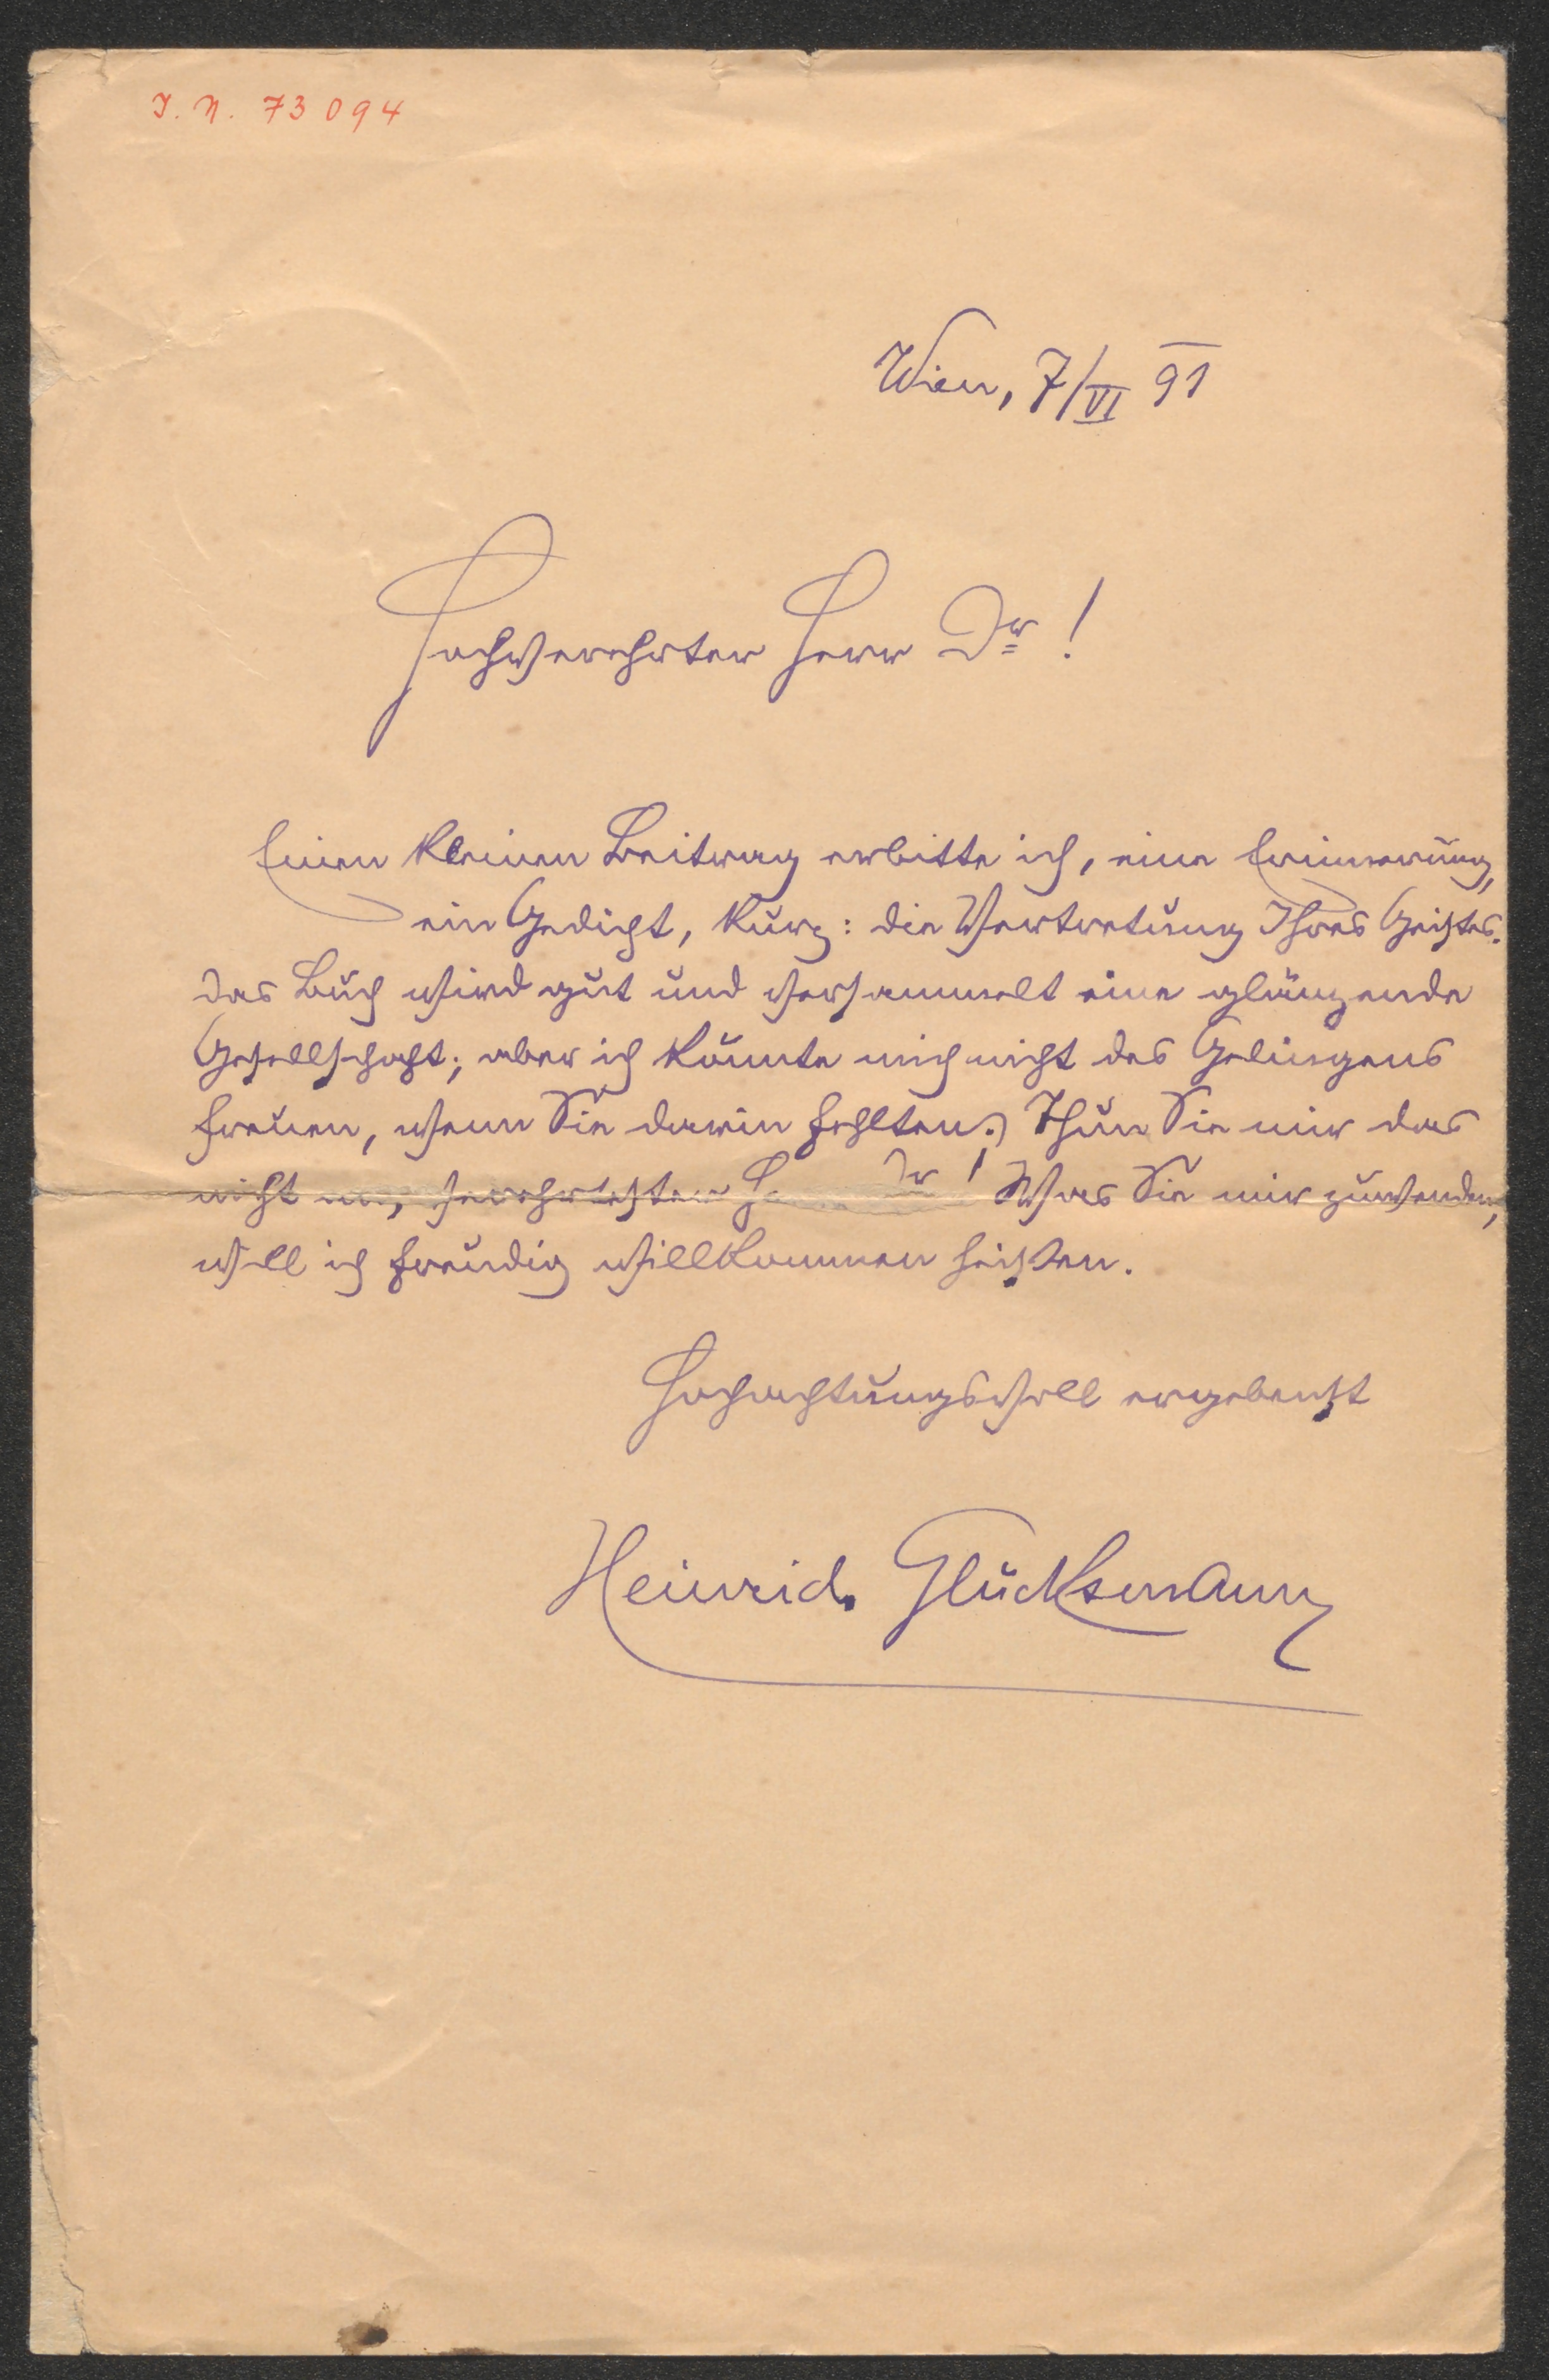 I. N. 73094
Wien, 7/VI 91
Hochverehrter Herr Dr!
Einen kleinen Beitrag erbitte ich, eine Erinnerung,
ein Gedicht, kurz: die Vertretung Ihres Geistes.
Das Buch wird gut und versammelt eine glänzende
Gesellschaft; aber ich könnte mich nicht des Gelingens
freuen, wenn Sie darin fehlten. Thun Sie mir das
nicht an, verehrtester Dr! Was Sie mir zuwenden,
will ich freudig willkommen heißen.
Hochachtungsvoll ergebenst
Heinrich Glücksmann